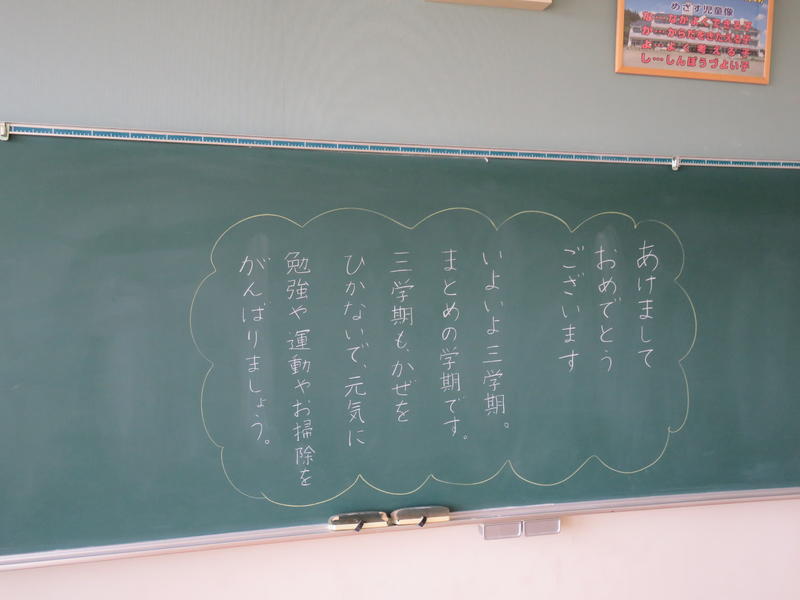 あけまして
おめでとう
ございます
いよいよ三学期。
まとめの学期です。
三学期も、かぜを
ひかないで、元気に
勉強や運動やお掃除を
がんばりましょう。
めざす児童像
お…よく考える子
し…しんぼうづよい子